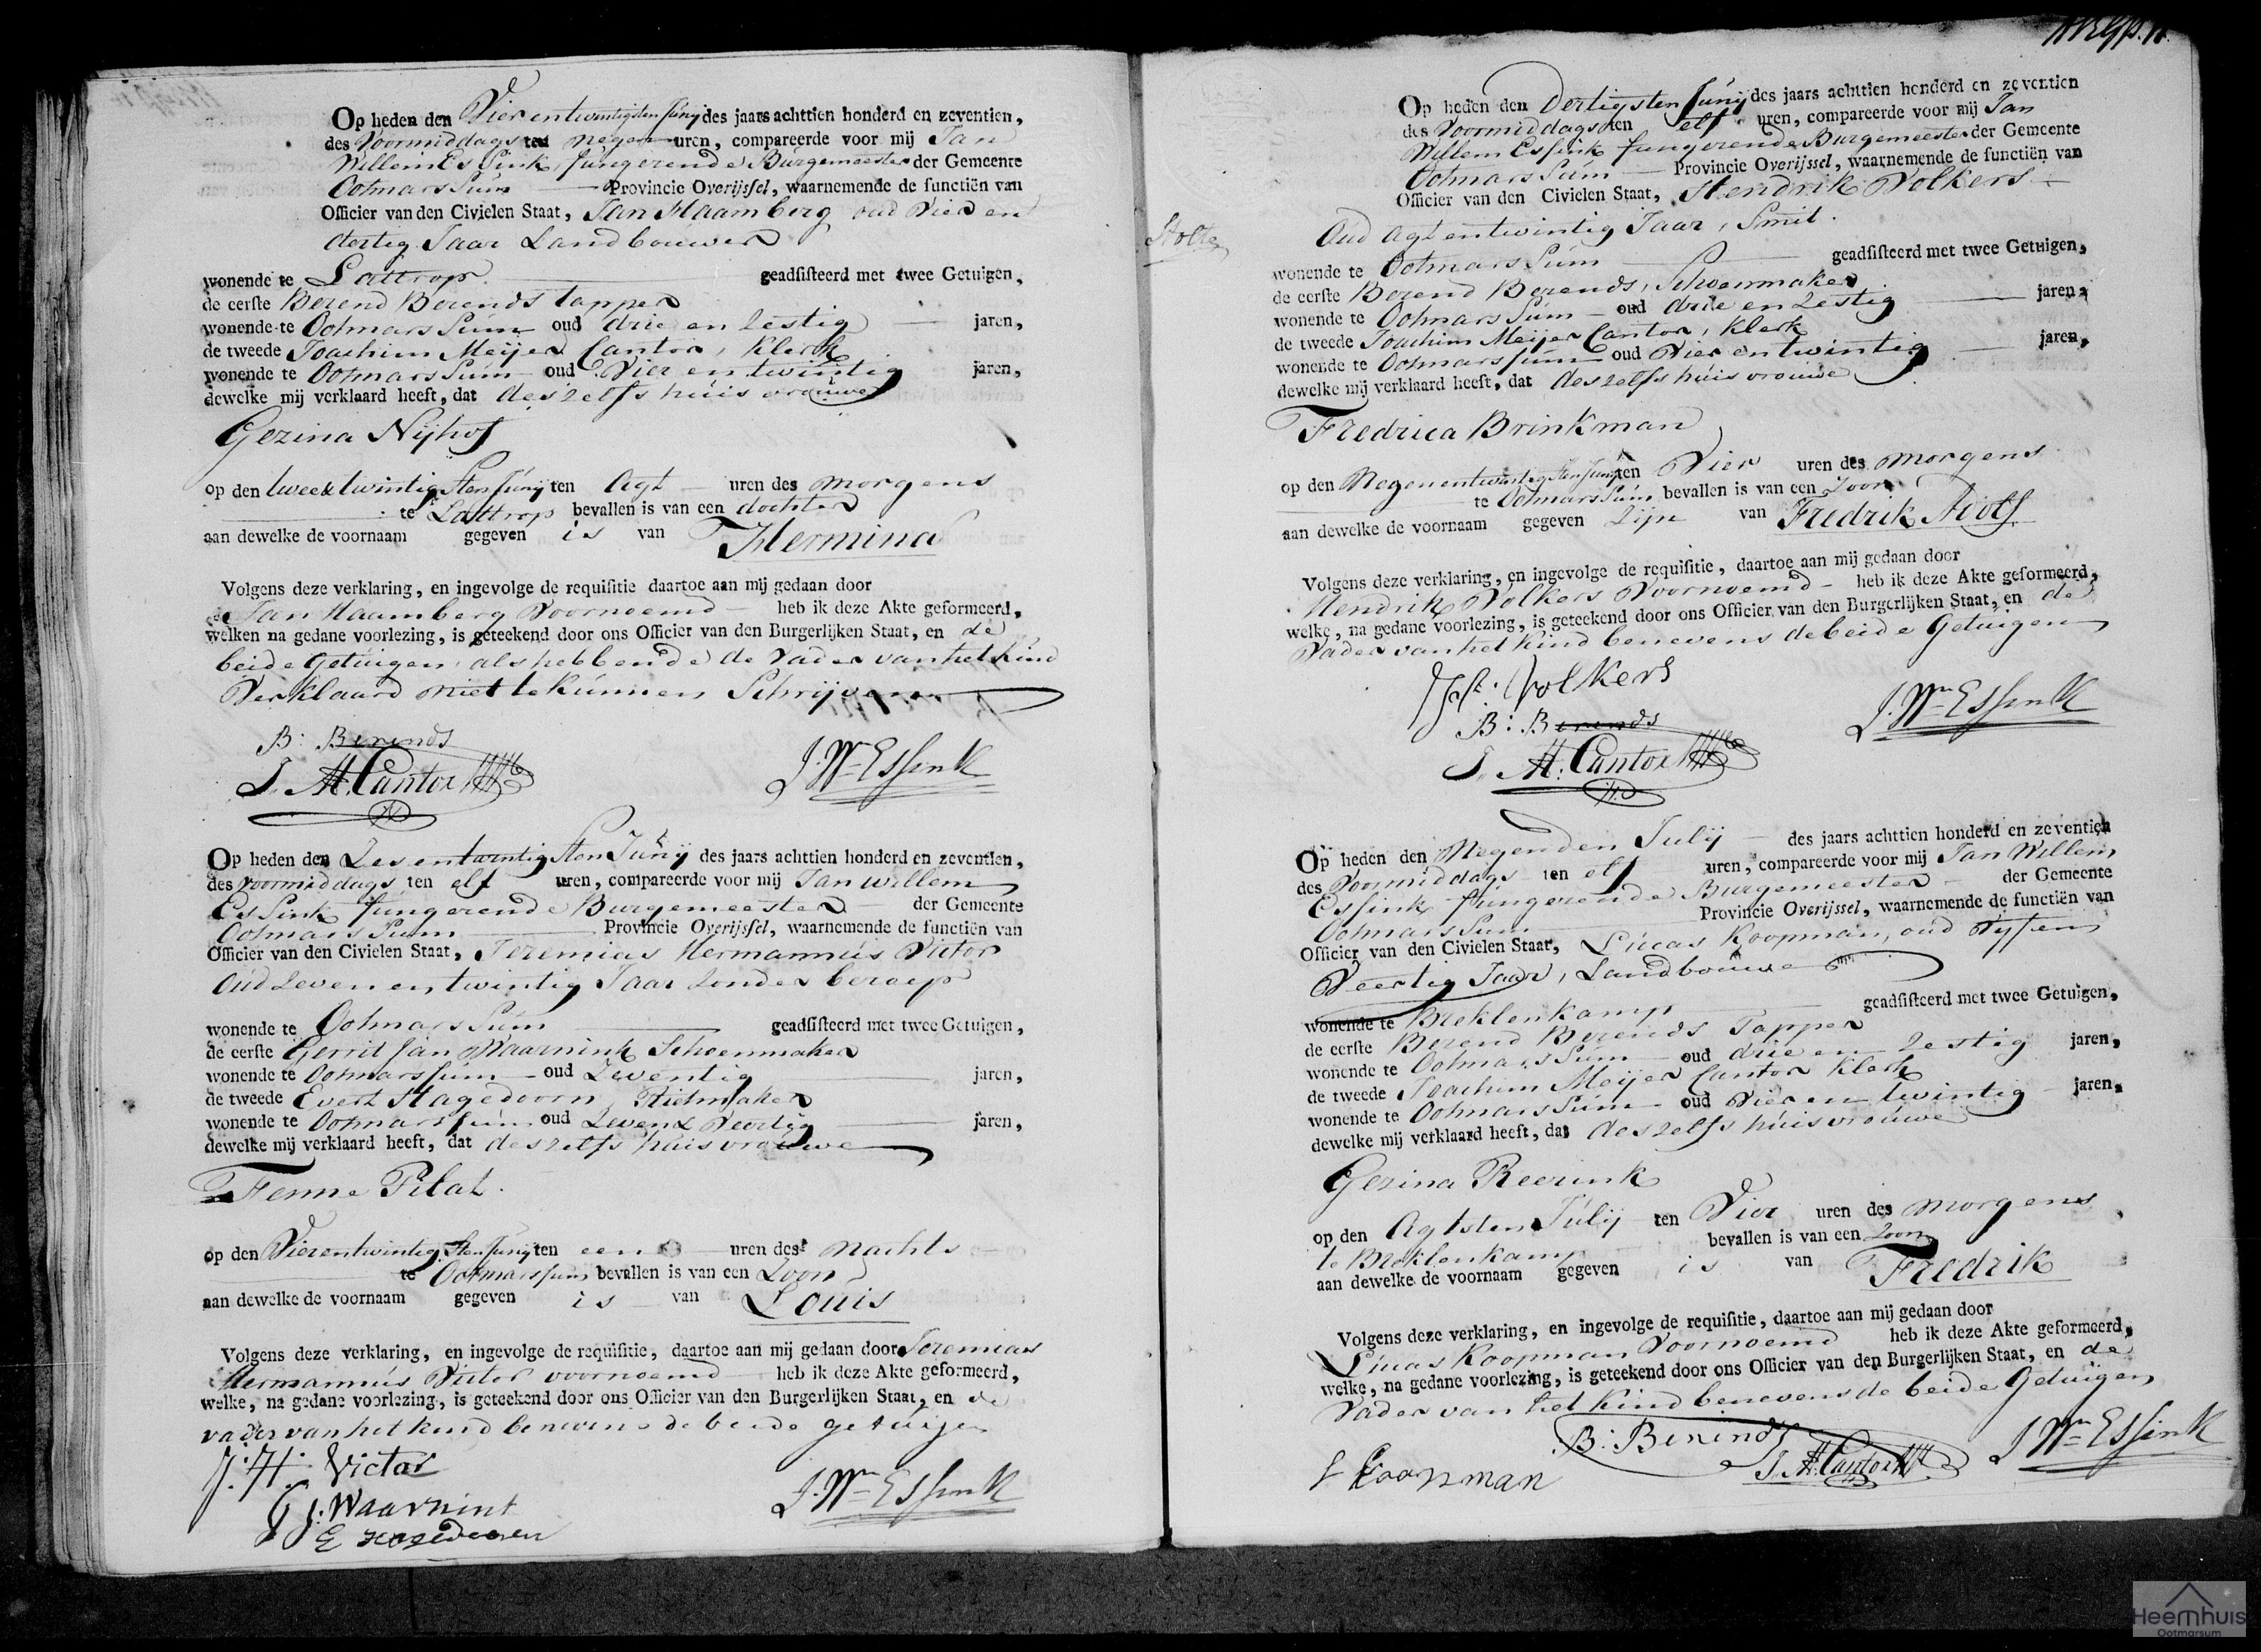 Op heden den Vier entwintigsten Junij des jaars achttien honderd en zeventien,
des Voormiddags ten negen uren, compareerde voor mij Jan
Willem Essink fungerende Burgemeester der Gemeente
Ootmarssum Provincie Overijssel, waarnemende de functiën van
Officier van den Civielen Staat, Jan Haamberg oud Vier en
dertig Jaar Landbouwer
wonende te Lattrop geadsisteerd met twee Getuigen,
de eerste Berend Berends tapper
wonende te Ootmarssum oud drie en Zestig jaren,
de tweede Joachim Meijer Cantor, Klerk
wonende te Ootmarssum oud Vier en twintig jaren,
dewelke mij verklaard heeft, dat deszelfs huisvrouwe
Gezina Nijhof
op den twee & twintigsten Junij ten Agt uren des morgens
te Lattrop bevallen is van een dochter
aan dewelke de voornaam gegeven is van Hermina
Volgens deze verklaring, en ingevolge de requisitie daartoe aan mij gedaan door
Jan Haamberg Voornoemd heb ik deze Akte geformeerd,
welken na gedane voorlezing, is geteekend door ons Officier van den Burgerlijken Staat, en de
beide Getuigen, als hebbende de Vader van het Kind
Verklaard niet te Kunnen Schrijven
B: Berends
J. M. Cantor
J. Wm Essink
Op heden den Zes entwintigsten Junij des jaars achttien honderd en zeventien,
des voormiddags ten elf uren, compareerde voor mij Jan willem
Essink fungerende Burgemeester der Gemeente
Ootmarssum Provincie Overijssel, waarnemende de functiën van
Officier van den Civielen Staat, Jeremias Hermannus Victor
Oud Zeven en twintig Jaar Zonder beroep
wonende te Ootmarssum geadsisteerd met twee Getuigen,
de eerste Gerrit Jan Waarnink Schoenmaker
wonende te Ootmarssum oud Zeventig jaren,
de tweede Evert Hagedoorn, Rietmaker
wonende te Ootmarssum oud Zeven & Veertig jaren,
dewelke mij verklaard heeft, dat deszelfs huisvrouwe
Fenne Pilat.
op den Vierentwintigsten Junij ten een uren des nachts
te Ootmarssum bevallen is van een Zoon
aan dewelke de voornaam gegeven is van Louis
Volgens deze verklaring, en ingevolge de requisitie, daartoe aan mij gedaan door Jeremias
Hermannus Victor voornoemd heb ik deze Akte geformeerd,
welke, na gedane voorlezing, is geteekend door ons Officier van den Burgerlijken Staat, en de
vader van het kind benevens de beide getuigen
J: H: Victor
G J: Waarnink
E Hagedooren
J. Wm Essink
Op heden den Dertigsten Junij des jaars achttien honderd en zeventien
des Voormiddags ten elf uren, compareerde voor mij Jan
Willem Essink fungerende Burgemeester der Gemeente
Ootmarssum Provincie Overijssel, waarnemende de functiën van
Officier van den Civielen Staat, Hendrik Volkers
Oud Agt en twintig Jaar, Smit.
Stolte
wonende te Ootmarssum geadsisteerd met twee Getuigen,
de eerste Berend Berends, Schoenmaker
wonende te Ootmarssum oud drie en Zestig jaren,
de tweede Joachim Meijer Cantor, Klerk
wonende te Ootmarssum oud Vier en twintig jaren,
dewelke mij verklaard heeft, dat deszelfs huisvrouwe
Fredrica Brinkman
op den Negenentwintigsten Junij ten Vier uren des morgens
te Ootmarssum bevallen is van een Zoon
aan dewelke de voornaam gegeven Zijn van Fredrik Adolf
Volgens deze verklaring, en ingevolge de requisitie, daartoe aan mij gedaan door
Hendrik Volkers Voornoemd heb ik deze Akte geformeerd,
welke, na gedane voorlezing, is geteekend door ons Officier van den Burgerlijken Staat, en de
Vader van het Kind benevens de beide Getuigen
Volkers
B: Berends
J. M. Cantor
J. Wm Essink
Op heden den Negenden Julij des jaars achttien honderd en zeventien
des Voormiddags ten elf uren, compareerde voor mij Jan Willem
Essink fungerende Burgemeester der Gemeente
Ootmarssum Provincie Overijssel, waarnemende de functiën van
Officier van den Civielen Staat, Lucas Koopman, oud Vyfen
Veertig Jaar, Landbouwer
wonende te Breklenkamp geadsisteerd met twee Getuigen,
de eerste Berend Berends Tapper
wonende te Ootmarssum oud drie en Zestig jaren,
de tweede Joachim Meijer Cantor Klerk
wonende te Ootmarssum oud Vier en twintig jaren,
dewelke mij verklaard heeft, dat deszelfs huisvrouwe
Gezina Reerink
op den Agtsten Julij ten Vier uren des morgens
te Breklenkamp bevallen is van een Zoon
aan dewelke de voornaam gegeven is van Fredrik
Volgens deze verklaring, en ingevolge de requisitie, daartoe aan mij gedaan door
Lucas Koopman Voornoemd heb ik deze Akte geformeerd,
welke, na gedane voorlezing, is geteekend door ons Officier van den Burgerlijken Staat, en de
Vader van het Kind benevens de beide Getuigen
B: Berends
J. M. Cantor
J Wm Essink
L Koopman
Heemhuis
Ootmarsum